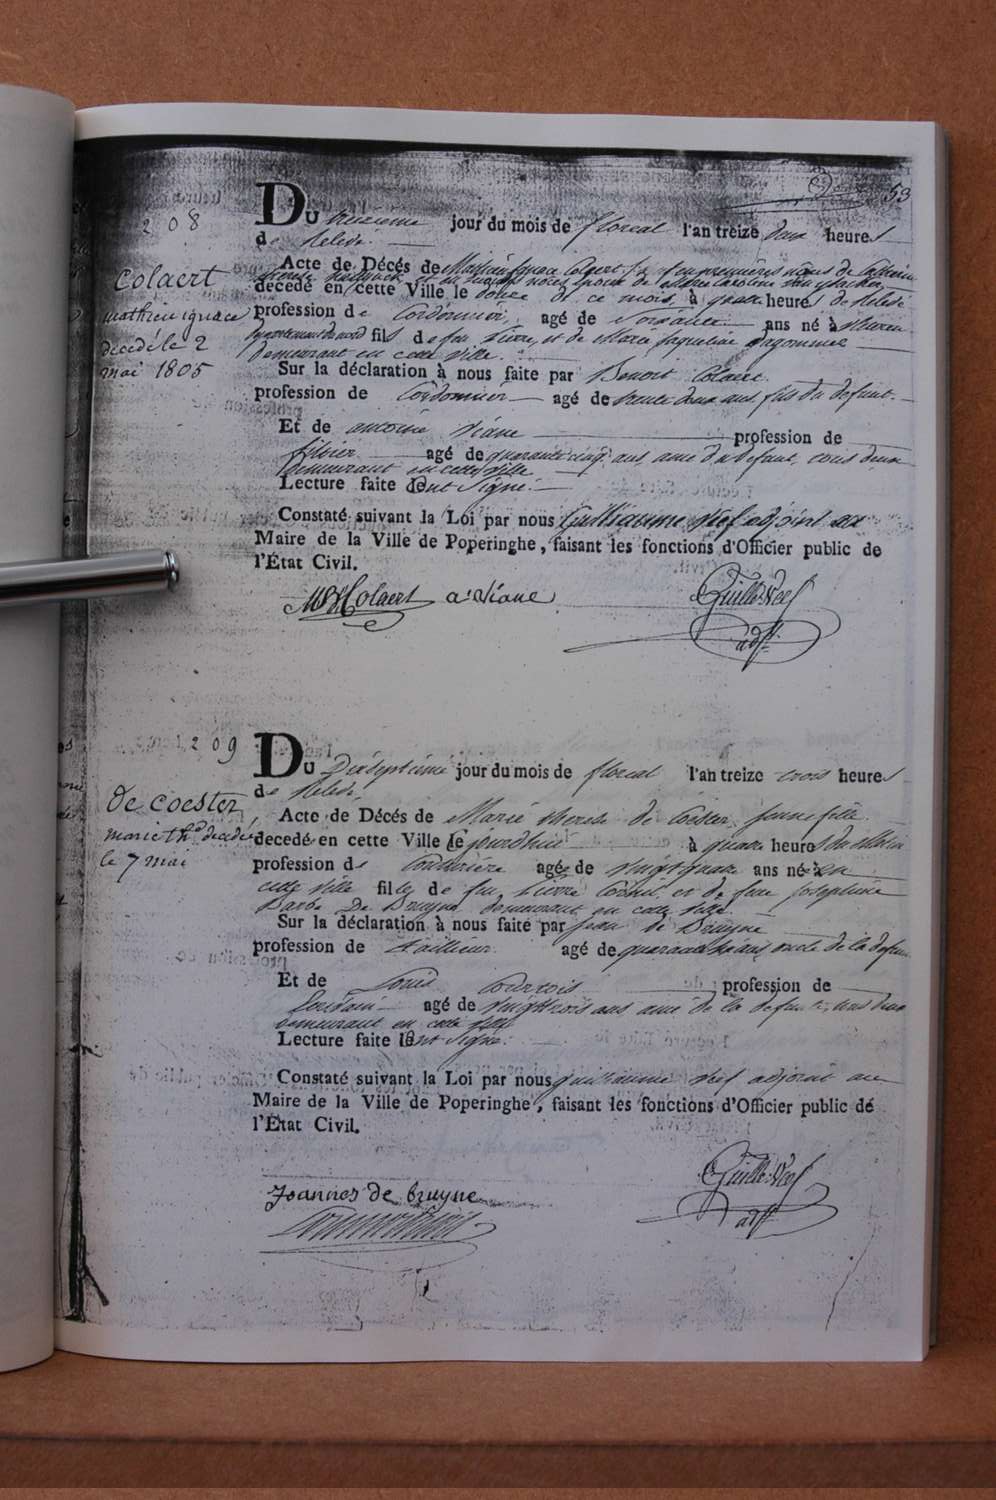 53
208
Du treizième jour du mois de floreal l'an treize deux heures
de Relevé.
Colaert
mathieu ignace
decédé le 2
mai 1805
Acte de Décés de Mathieu Ignace Colaert en premières nôces de Catherine
decedé en cette Ville le douze de ce mois, à quatre heures de Relevé
profession de Cordonnier, agé de Soixante ans né à
departement du nord fils de feu Pierre, et de Marie Jaqueline
demeurant en cette ville.
Sur la déclaration à nous faite par Benoit Colaert
profession de Cordonnier agé de trente deux ans, fils du defunt.
Et de antoine Viane profession de
agé de quarante cinq ans, ami du defunt, tous deux
demeurant en cette ville
Lecture faite ont Signé.
Constaté suivant la Loi par nous Guilliaume Veef adjoint au
Maire de la Ville de Poperinghe, faisant les fonctions d'Officier public de
l'État Civil.
Colaert a: Viane Guille: Veef
adjt.
209
Du Dixseptième jour du mois de floreal l'an treize trois heures
de Relevé.
De coester
marie thse decedée
le 7 mai
Acte de Décés de Marie Therese de Coester, jeune fille
decedé en cette Ville Cejourdhui à quatre heures du Matin
profession de Couturière agée de Vingt quatre ans né en
cette ville fille de feu Pierre Corneil, et de feue Josephine
Barbe De Bruyne demeurant en cette ville.
Sur la déclaration à nous faite par Jean de Bruyne
profession de tailleur agé de quarante ans oncle de la defunte
Et de Louis Courtois profession de
agé de Vingt trois ans ami de la defunte, tous deux
demeurant en cette ville
Lecture faite ont Signé.
Constaté suivant la Loi par nous guilliaume Veef adjoint au
Maire de la Ville de Poperinghe, faisant les fonctions d'Officier public dé
l'État Civil.
Joannes de bruyne Guille: Veef
adjt.